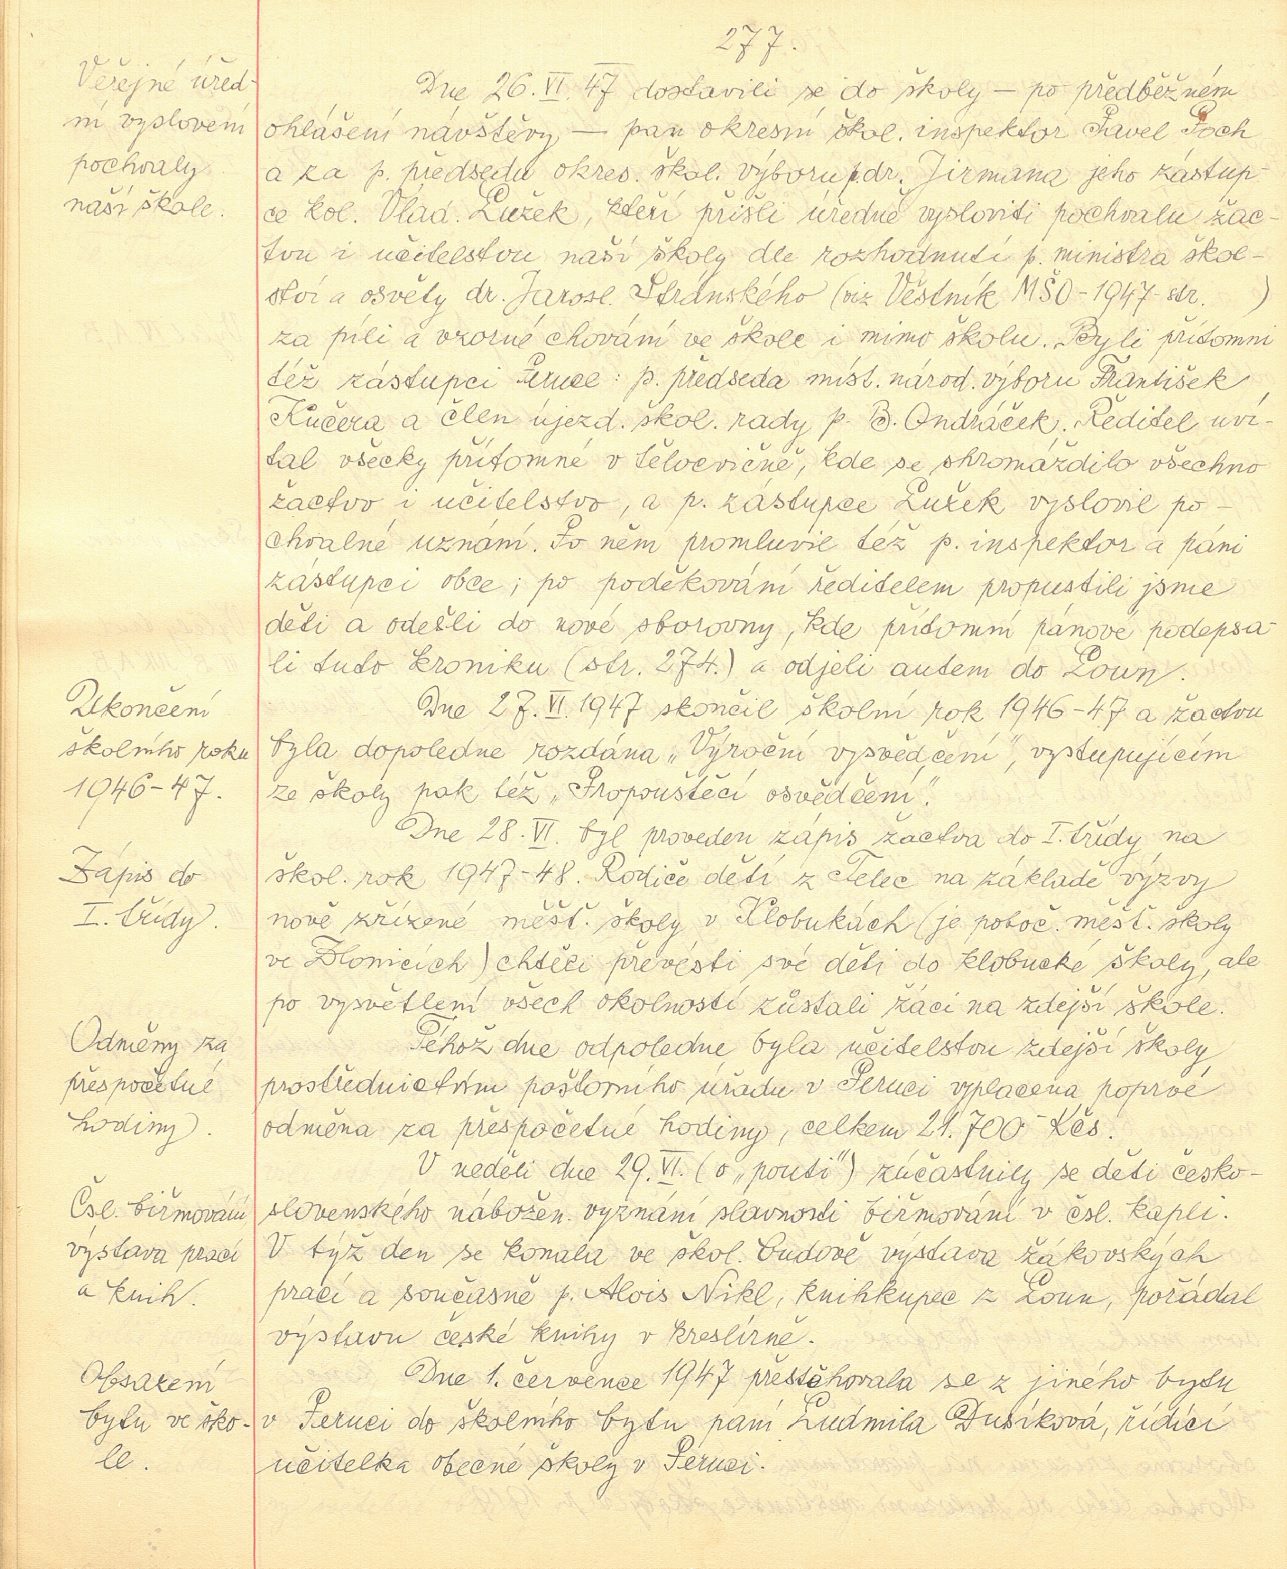 277.
Veřejné úřed-
ní vyslovení
pochvaly
naší škole.
Dne 26. VI. 47 dostavili se do školy — po předběžném
ohlášení návštěvy — pan okresní škol. inspektor Pavel Poch
a za p. předsedu okres. škol. výboru p. dr. Jirmana jeho zástup-
ce kol. Vlad. Lužek, kteří přišli úředně vysloviti pochvalu žac-
tvu i učitelstvu naší školy dle rozhodnutí p. ministra škol-
ství a osvěty dr. Jarosl. Stránského (viz Věstník MŠO - 1947 - str. )
za píli a vzorné chování ve škole i mimo školu. Byli přítomni
též zástupci Peruce: p. předseda míst. národ. výboru František
Kučera a člen újezd. škol. rady p. B. Ondráček. Ředitel uví-
tal všecky přítomné v tělocvičně, kde se shromáždilo všechno
žactvo i učitelstvo, a p. zástupce Lužek vyslovil po-
chvalné uznání. Po něm promluvil též p. inspektor a páni
zástupci obce; po poděkování ředitelem propustili jsme
děti a odešli do nové sborovny, kde přítomní pánové podepsa-
li tuto kroniku (str. 274.) a odjeli autem do Loun.
Ukončení
školního roku
1946-47.
Dne 27. VI. 1947 skončil školní rok 1946-47 a žactvu
byla dopoledne rozdána „Výroční vysvědčení", vystupujícím
ze školy pak též „Propouštěcí osvědčení".
Zápis do
I. třídy.
Dne 28. VI. byl proveden zápis žactva do I. třídy na
škol. rok 1947-48. Rodiče dětí z Telec na základě výzvy
nově zřízené měšť. školy v Klobukách (je poboč. měšť. školy
ve Zlonicích) chtěli převésti své děti do klobucké školy, ale
po vysvětlení všech okolností zůstali žáci na zdejší škole.
Odměny za
přespočetné
hodiny.
Téhož dne odpoledne byla učitelstvu zdejší školy
prostřednictvím poštovního úřadu v Peruci vyplacena poprvé
odměna za přespočetné hodiny, celkem 21.700 - Kčs.
Čsl. biřmování
výstava prací
a knih.
V neděli dne 29. VI. (o „pouti") zúčastnily se děti česko-
slovenského nábožen. vyznání slavnosti biřmování v čsl. kapli.
V týž den se konala ve škol. budově výstava žákovských
prací a současně p. Alois Nikl, knihkupec z Loun, pořádal
výstavu české knihy v kreslírně.
Obsazení
bytu ve ško-
le.
Dne 1. července 1947 přestěhovala se z jiného bytu
v Peruci do školního bytu paní Ludmila Dusíková, řídící
učitelka obecné školy v Peruci.